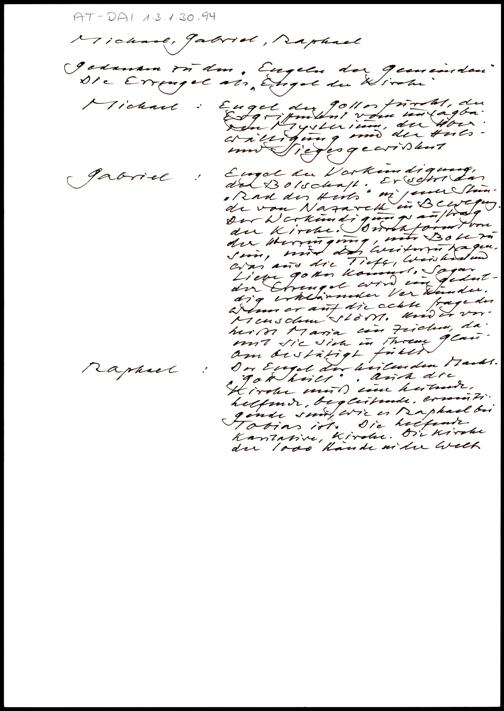 AT-DAI 1.3.1.30.94
Michael, Gabriel, Raphael
Gedanken zu den "Engeln der Gemeinden"
Die Erzengel als "Engel der Kirche"
Michael : Engel der Gottesfurcht, der
Ergriffenheit vom unsagba-
ren Mysterium, der Über-
wältigung und der Heils-
und Siegesgewißheit
Gabriel : Engel der Verkündigung,
der Botschaft. Er setzt das
"Rad des Heils" in jener Stun-
de von Nazareth in Bewegung.
Der Verkündigungsauftrag
der Kirche. Durchformt von
der Verneigung, nur Bote zu
sein, nur das weiterzutragen,
was aus der Tiefe, Weisheit und
Liebe Gottes kommt. Sogar
der Erzengel wird ein gedul-
dig erklärender Verkünder,
wenn er auf die echte Frage des
Menschen stößt. Und er ver-
heißt Maria ein Zeichen, da-
mit sie sich in ihrem Glau-
ben bestätigt fühlt.
Raphael : Der Engel der heilenden Macht.
"Gott heilt". Auch die
Kirche muß eine heilende,
helfende, begleitende, ermuti-
gende sein, wie es Raphael bei
Tobias ist. Die helfende
karitative, Kirche. Die Kirche
der 1000 Hände in der Welt